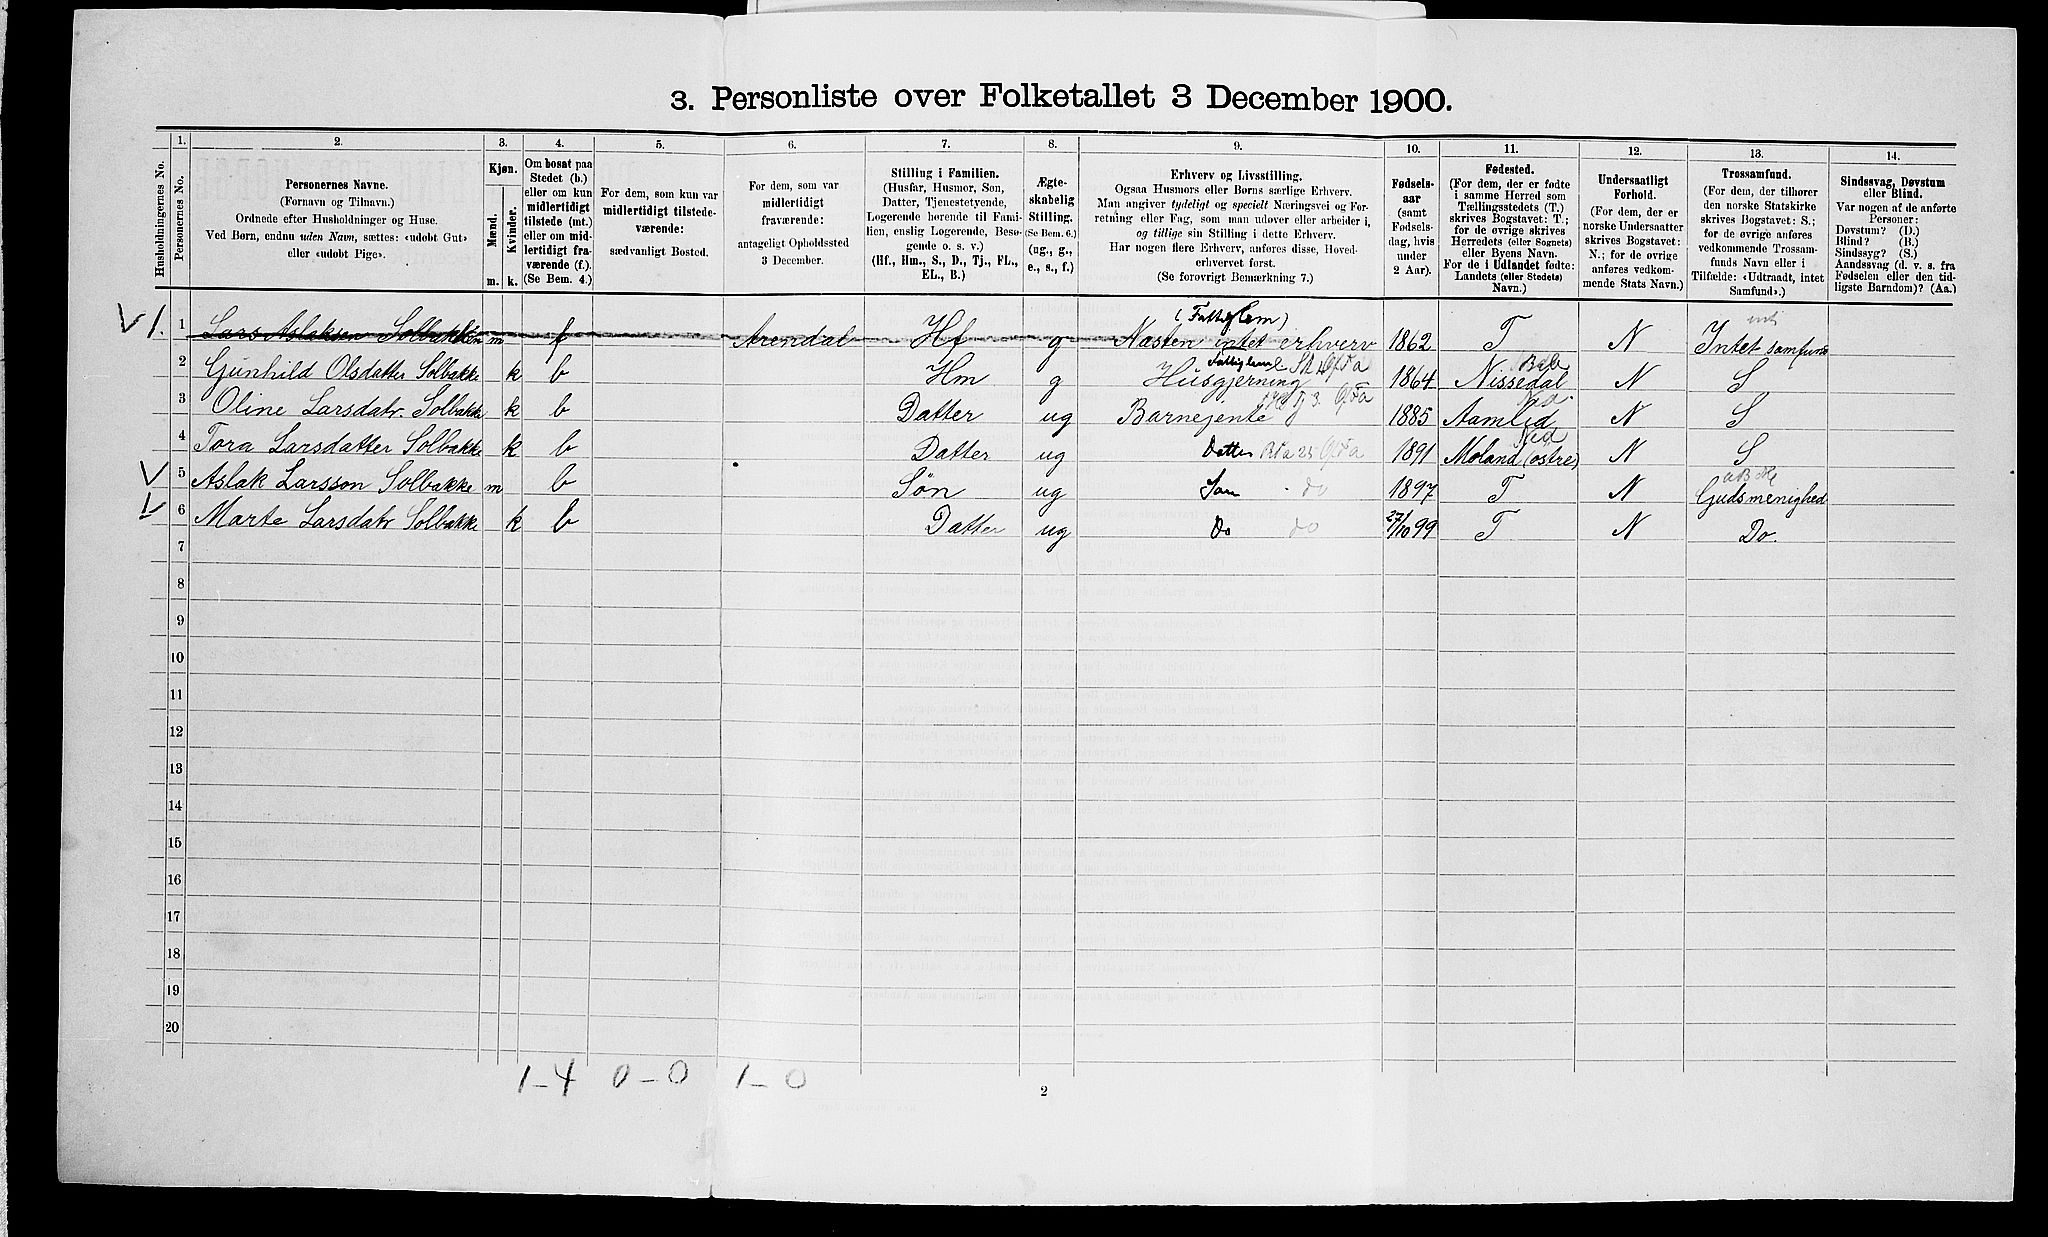 3. Personliste over Folketallet 3 December 1900.
Husholdningernes No.
1.
Personernes No.
2.
Personernes Navne.
(Fornavn og Tilnavn.)
Ordnede efter Husholdninger og Huse.
Ved Børn, endnu uden Navn, sættes: «udøbt Gut»
eller «udøbt Pige».
3.
Kjøn.
Mænd.
Kvinder.
m. k.
4.
Om bosat paa
Stedet (b.)
eller om kun
midlertidigt
tilstede (mt.)
eller om mid-
lertidigt fra-
værende (f.).
(Se Bem. 4.)
5.
For dem, som kun var
midlertidigt tilstede-
værende:
sædvanligt Bosted.
6.
For dem, som var
midlertidigt
fraværende:
antageligt Opholdssted
3 December.
7.
Stilling i Familien.
(Husfar, Husmor, Søn,
Datter, Tjenestetyende,
Logerende hørende til Fami-
lien, enslig Logerende, Besø-
gende o. s. v.)
(Hf., Hm., S., D., Tj., FL.,
EL., B.)
8.
Ægte-
skabelig
Stilling.
(Se Bem. 6.)
(ug., g.,
e., s., f.)
9.
Erhverv og Livsstilling.
Ogsaa Husmors eller Børns særlige Erhverv.
Man angiver tydeligt og specielt Næringsvei og For-
retning eller Fag, som man udøver eller arbeider i,
og tillige sin Stilling i dette Erhverv.
Har nogen flere Erhverv, anføres disse, Hoved-
erhvervet først.
(Se forøvrigt Bemærkning 7.)
10.
Fødsels-
aar
(samt
Fødsels-
dag, hvis
under
2 Aar).
11.
Fødested.
(For dem, der er fødte
i samme Herred som
Tællingsstedets (T.)
skrives Bogstavet: T.;
for de øvrige skrives
Herredets (eller Sognets)
eller Byens Navn.
For de i Udlandet fødte:
Landets (eller Stedets)
Navn.)
12.
Undersaatligt
Forhold.
(For dem, der er
norske Undersaatter
skrives Bogstavet:
N.; for de øvrige
anføres vedkom-
mende Stats Navn.)
13.
Trossamfund.
(For dem, der tilhører
den norske Statskirke
skrives Bogstavet: S.;
for de øvrige anføres
vedkommende Trossam-
funds Navn eller i
Tilfælde: «Udtraadt, intet
Samfund».)
14.
Sindssvag, Døvstum
eller Blind.
Var nogen af de anførte
Personer:
Døvstum? (D.)
Blind? (B.)
Sindssyg? (S.)
Aandssvag (d. v. s. fra
Fødselen eller den tid-
ligste Barndom)? (Aa.)
(Fattiglem)
V 1. 1 Lars Aslaksen Solbakken m f Arendal Hf g Næsten intet erhverv 1862 T N Intet samfund
Fattiglem
2 Gunhild Olsdatter Solbakke k b Hm g Husgjerning 1864 Nissedal N S
3 Oline Larsdatr. Solbakke k b Datter ug Barnejente 1885 Aamlid N S
4 Tora Larsdatter Solbakke k b Datter ug Datter 1891 Moland (østre) N S
V 5 Aslak Larsson Solbakke m b Søn ug Søn do 1897 T N Gudsmenighed
V 6 Marte Larsdatr Solbakke k b Datter ug Do do 27/10 99 T N Do.
7
8
9
10
11
12
13
14
15
16
17
18
19
20
1-4 0-0 1-0
2